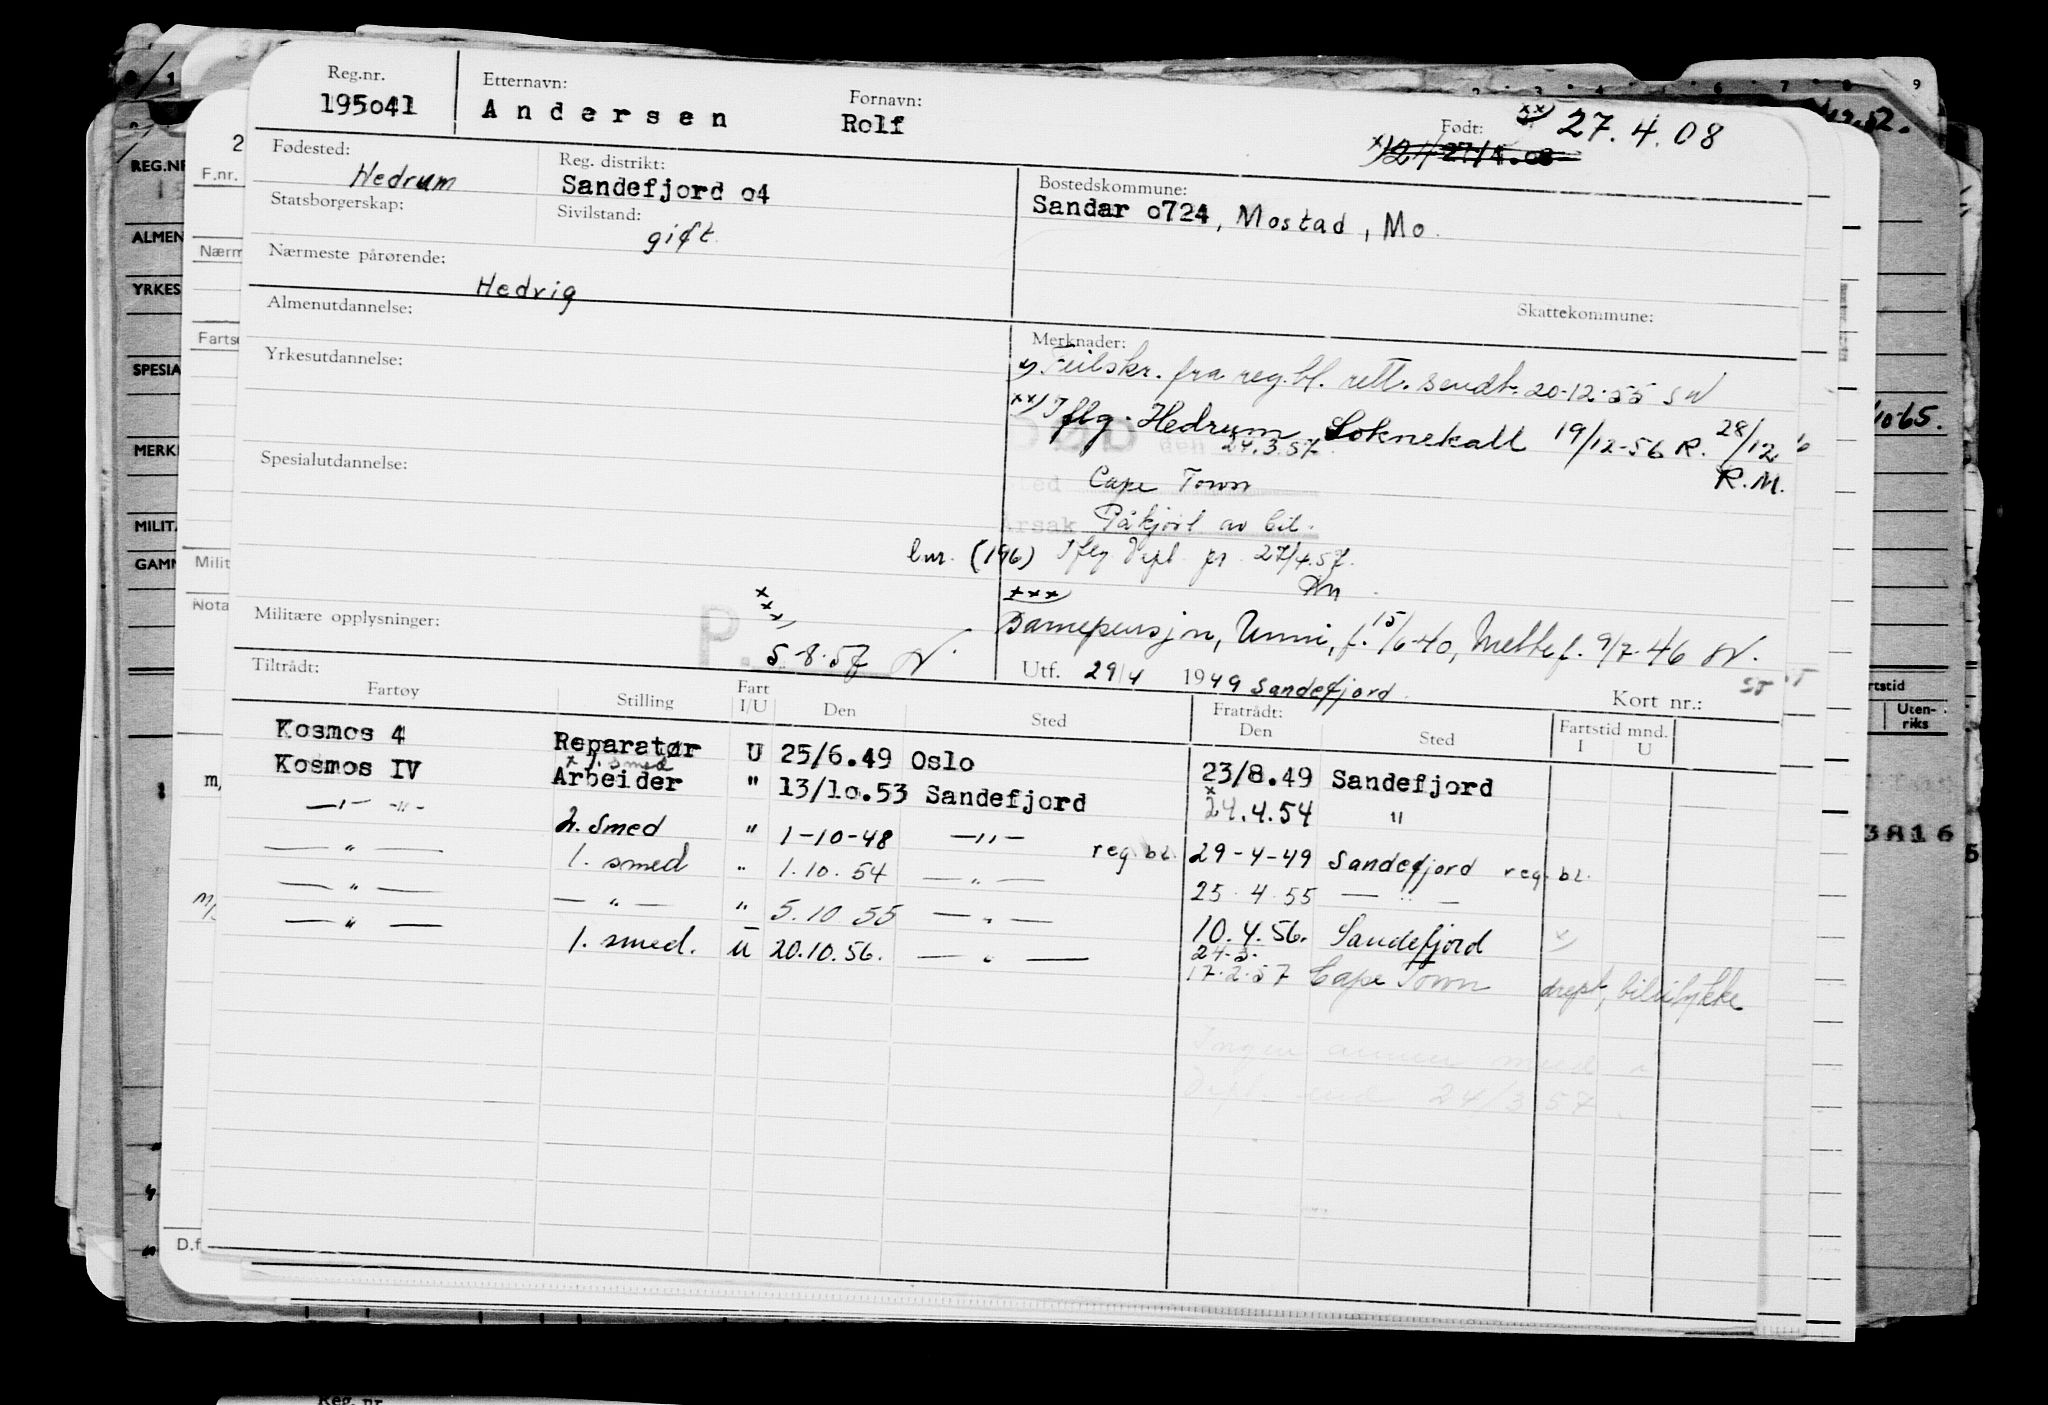 Reg.nr. Etternavn: Fornavn: Født: xx) 27.4.08
195o41 Andersen Rolf
x) 27/4.08
Fødested: Hedrum Reg. distrikt: Sandefjord o4 Bostedskommune: Sandar o724, Mostad, Mo
Statsborgerskap: Sivilstand: gift
Nærmeste pårørende: Hedvig
Almenutdannelse: Skattekommune:
Yrkesutdannelse: Merknader:
x) Feilskr. fra reg.bl. rett. sendt. 20-12-55
xx) Iflg. Hedrum Soknekall 19/12-56 R. 28/12
R.M.
Død den 24.3.57
Spesialutdannelse: sted Cape Town
årsak Påkjørt av bil.
lnr. (196) Iflg Dept. 27/4.57.
xxx)
Militære opplysninger: P. xxx) 5.8.57
Barnepensjon, Unni, f. 15/6-40, Mette f. 9/7-46
Utf. 29/4 1949 Sandefjord Kort nr.:
Tiltrådt: Fratrådt: Fartstid mnd.
Fartøy Stilling Fart I/U Den Sted Den Sted I U
Kosmos 4 Reparatør U 25/6.49 Oslo 23/8.49 Sandefjord
x 1. smed
Kosmos IV Arbeider " 13/1o.53 Sandefjord x 24.4.54 "
—"— -"- 2. Smed " 1-10-48 —"— reg.bl. 29-4-49 Sandefjord reg.bl.
—"— 1. smed " 1.10.54 —"— 25.4.55 —"—
—"— —"— " 5.10.55 —"— 10.4.56. Sandefjord x)
—"— 1. smed. U 20.10.56. —"— 24.3.
17.2.57 Cape Town drept, bilulykke
24/3 57.
REG.NR
ALMEN
YRKES
SPESIA
MERK
MILIT
GAMN
F.nr.
Nærm
Fartsø
Milit
Nota
D.f
10-65.
rtstid
Uten-
riks
3816
Reg. nr